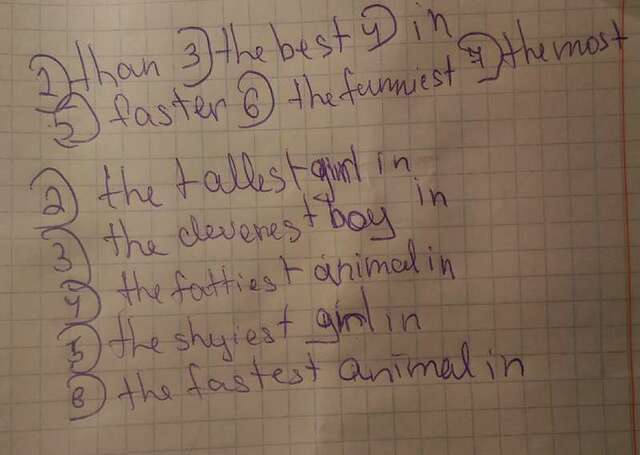 2) than 3) the best 4) in
5) faster 6) the funniest 7) the most
2) the tallest girl in
3) the cleverest boy in
4) the fattiest animal in
5) the shyiest girl in
6) the fastest animal in